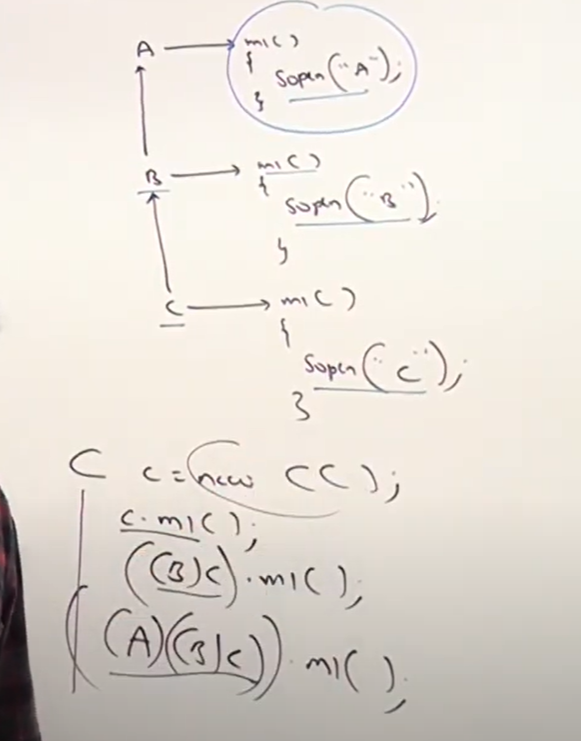 A → m1()
{
Sopln("A");
}
B → m1()
{
Sopln("B");
}
C → m1()
{
Sopln("C");
}
C c = new C();
c.m1();
((B)c).m1();
((A)((B)c)).m1();